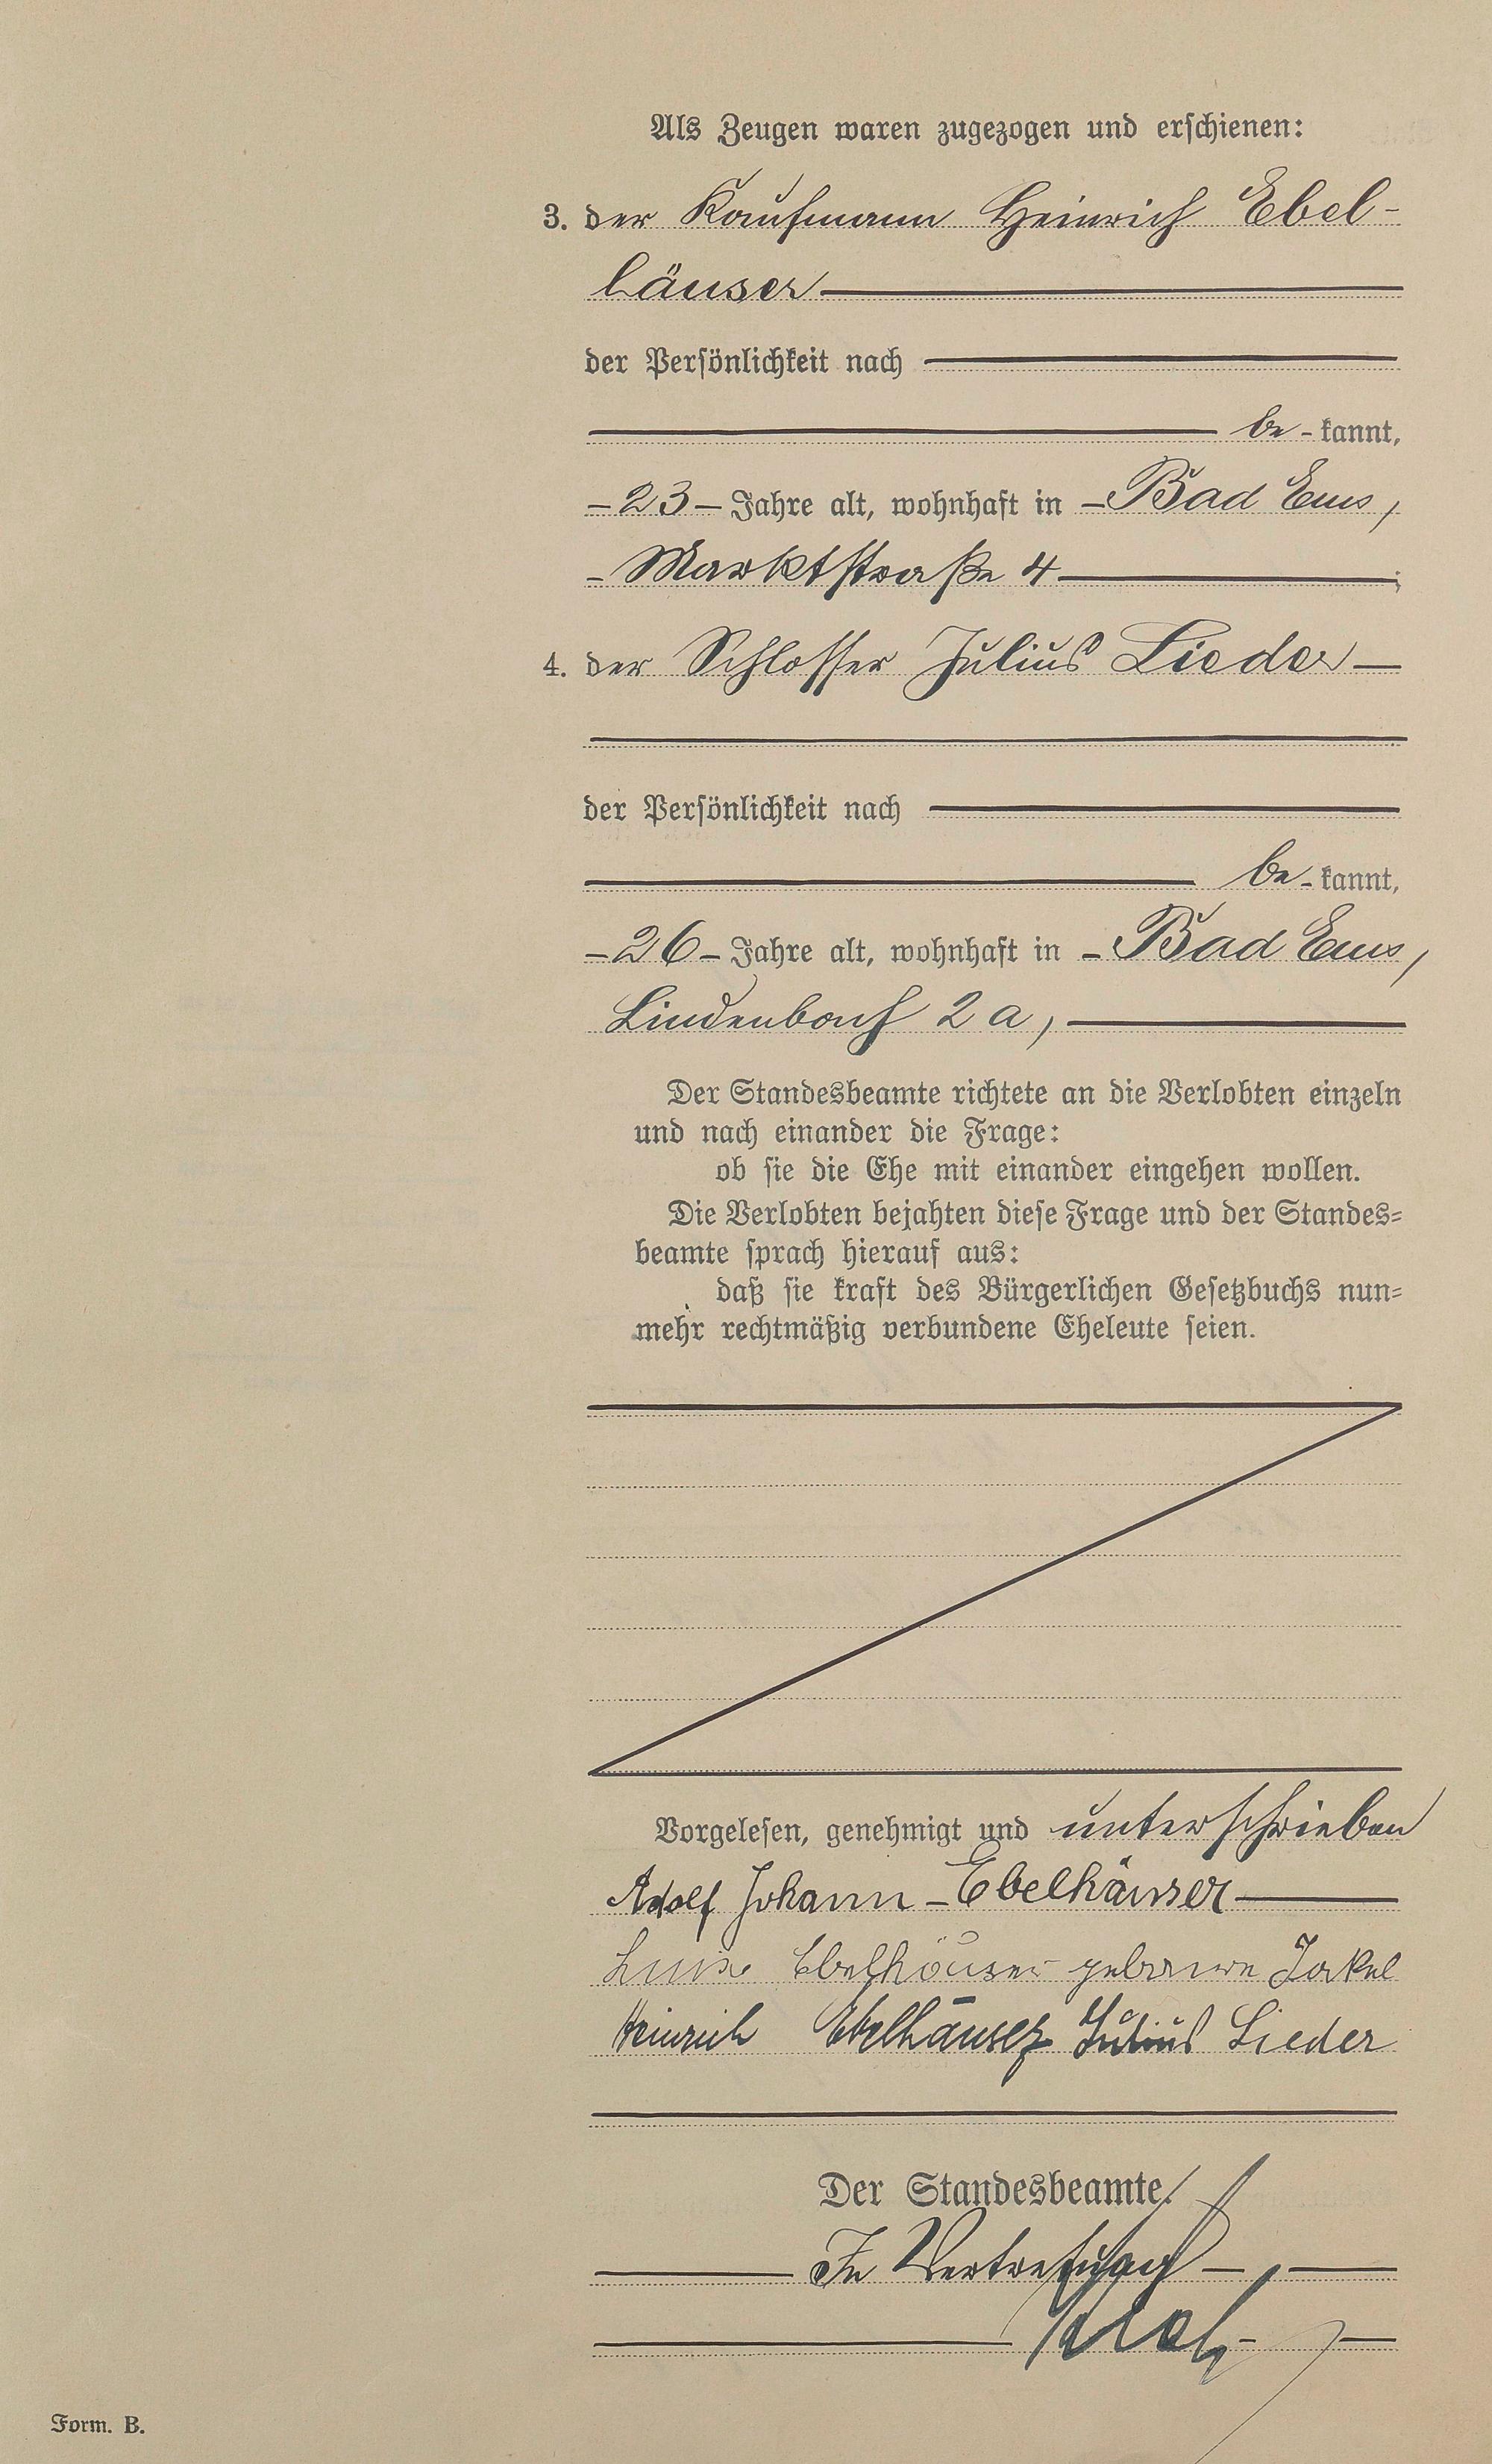 Als Zeugen waren zugezogen und erschienen:
3. der Kaufmann Heinrich Ebel-
häuser
der Persönlichkeit nach
be-kannt,
-23- Jahre alt, wohnhaft in -Bad Ems,
-Marktstraße 4 ;
4. der Schlosser Julius Lieder-
der Persönlichkeit nach
be-kannt,
-26- Jahre alt, wohnhaft in -Bad Ems,
Lindenbach 2 a,
Der Standesbeamte richtete an die Verlobten einzeln
und nach einander die Frage:
ob sie die Ehe mit einander eingehen wollen.
Die Verlobten bejahten diese Frage und der Standes-
beamte sprach hierauf aus:
daß sie kraft des Bürgerlichen Gesetzbuchs nun-
mehr rechtmäßig verbundene Eheleute seien.
Vorgelesen, genehmigt und unterschrieben
Adolf Johann-Ebelhäuser
Luise Ebelhäuser geborene Jakel
Heinrich Ebelhäuser Julius Lieder
Der Standesbeamte.
In Vertretung
Form. B.